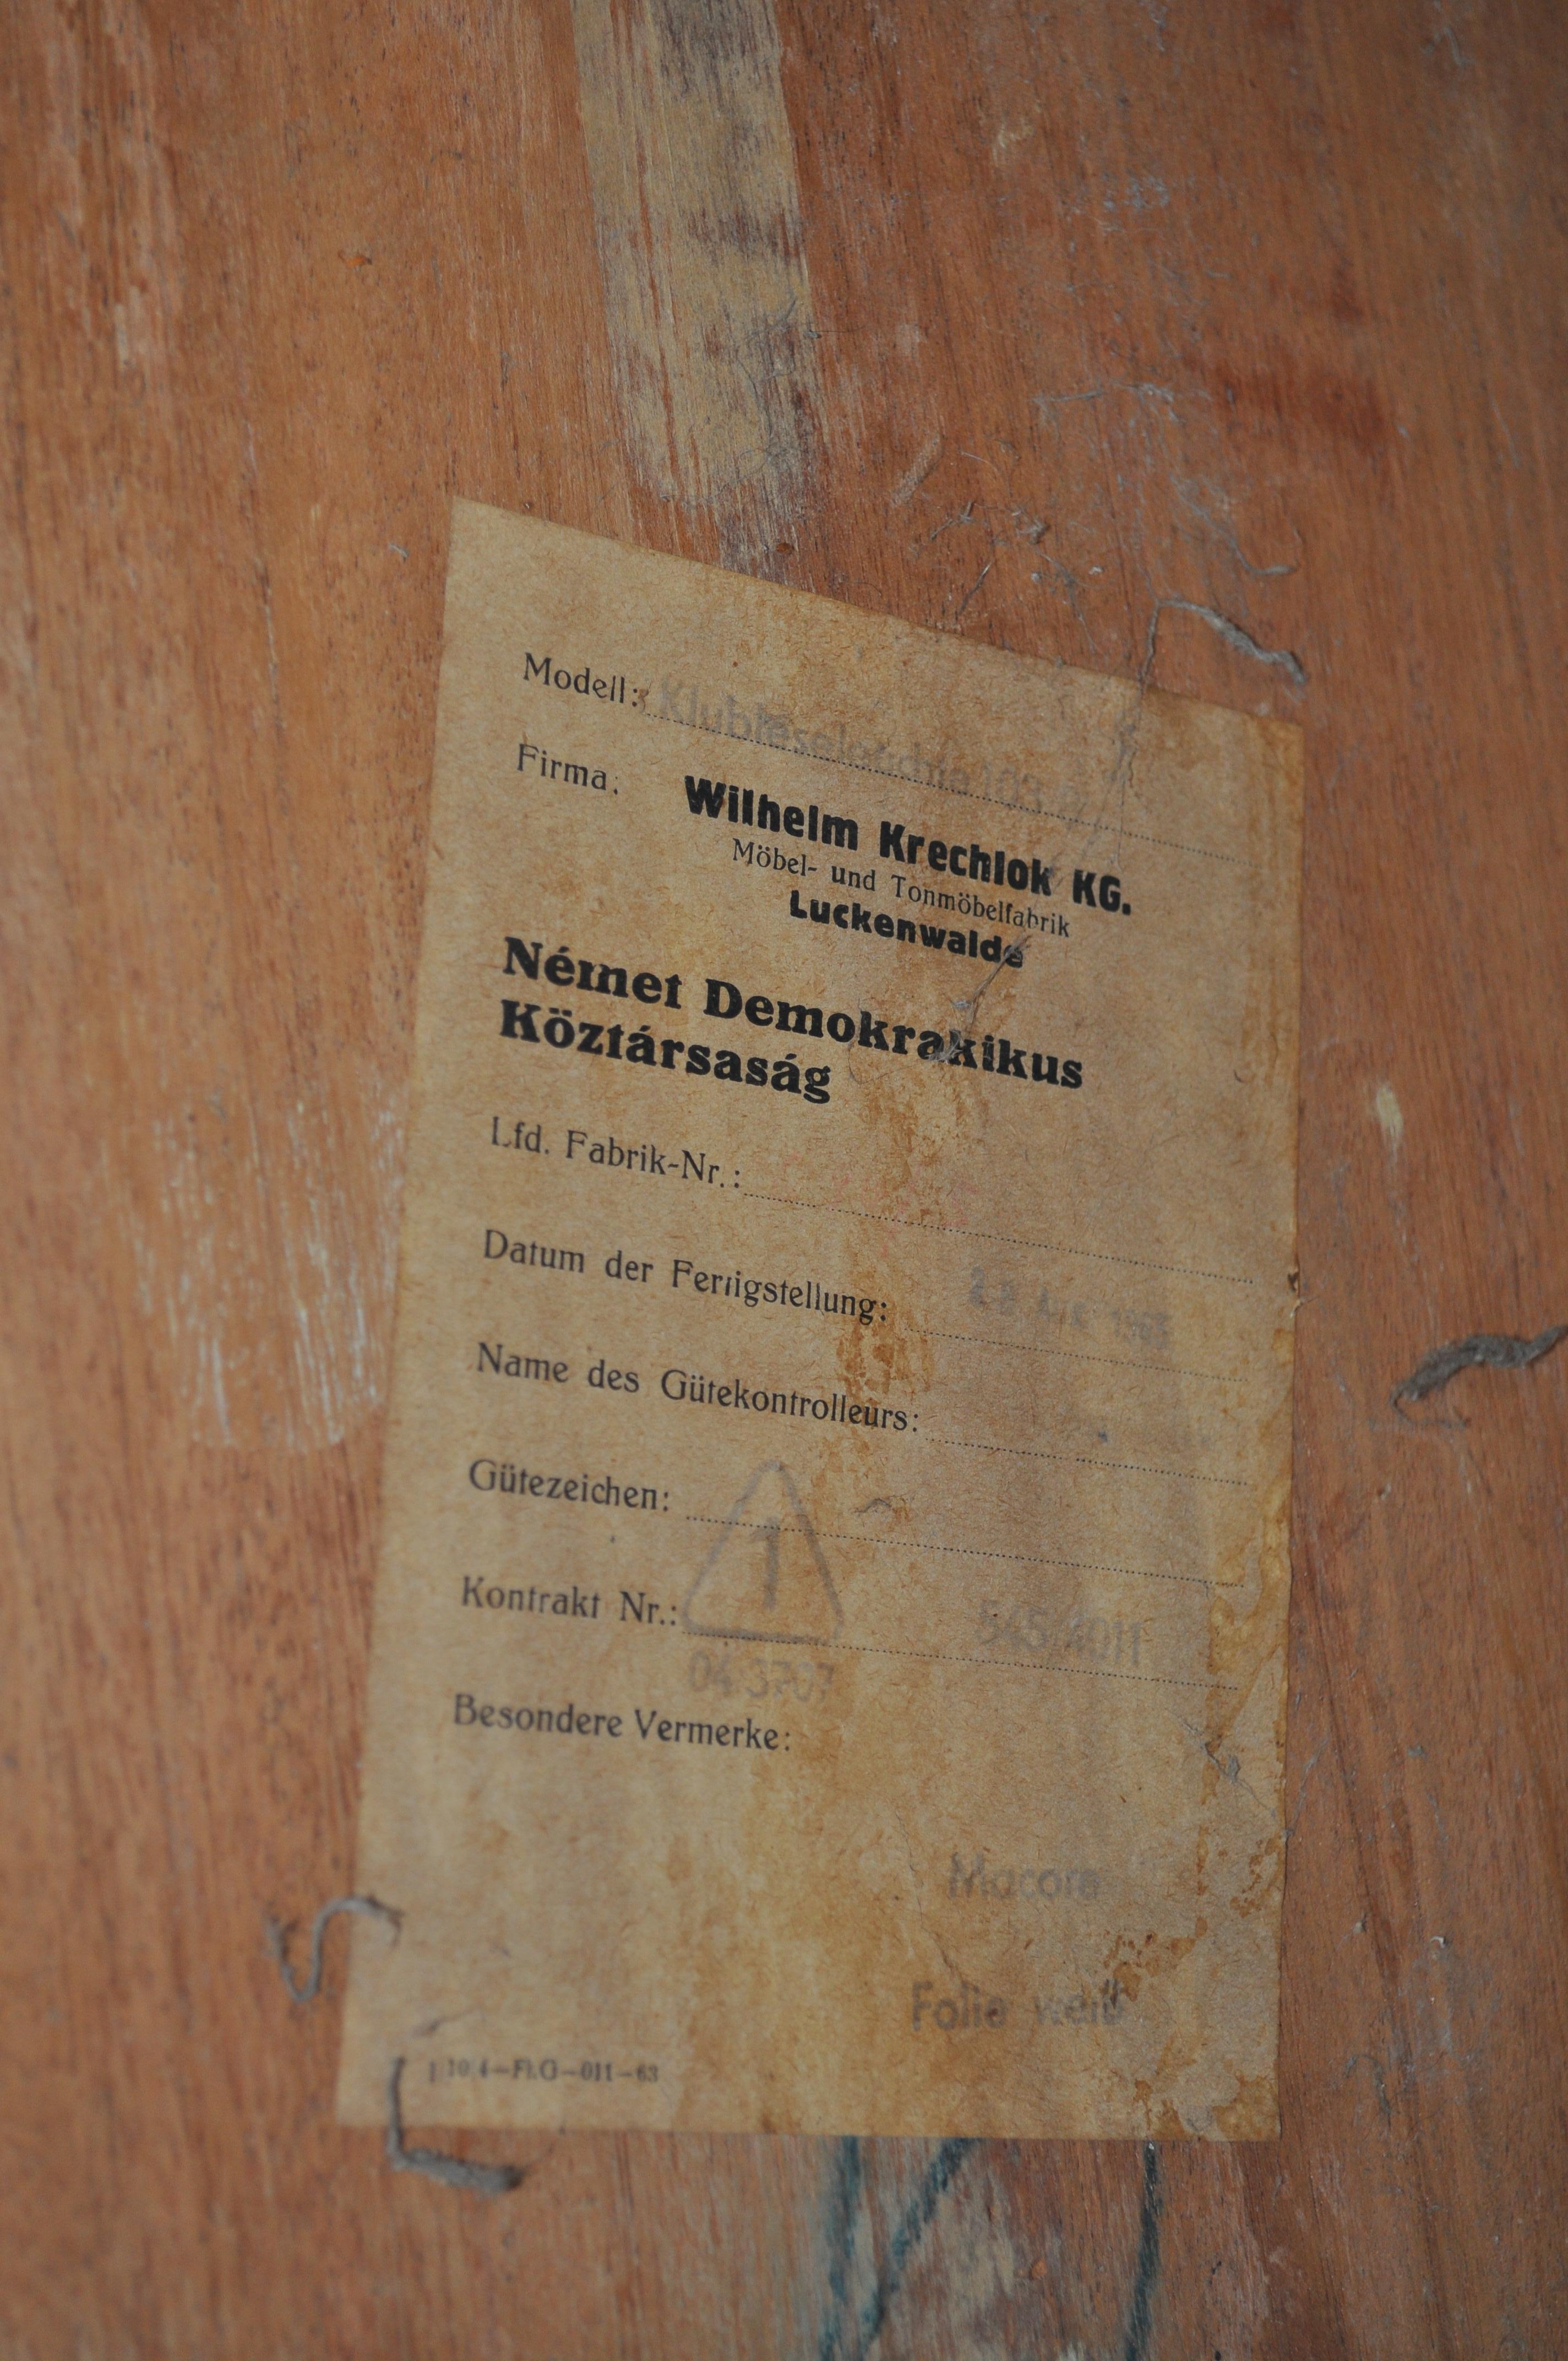 Modell:
Firma:
Wilhelm Krechlok KG.
Möbel- und Tonmöbelfabrik
Luckenwalde
Német Demokrakikus
Köztársaság
Lfd. Fabrik-Nr.:
Datum der Fertigstellung:
Name des Gütekontrolleurs:
Gütezeichen:
1
Kontrakt Nr.:
04 3707
Besondere Vermerke:
Macore
Folie weiß